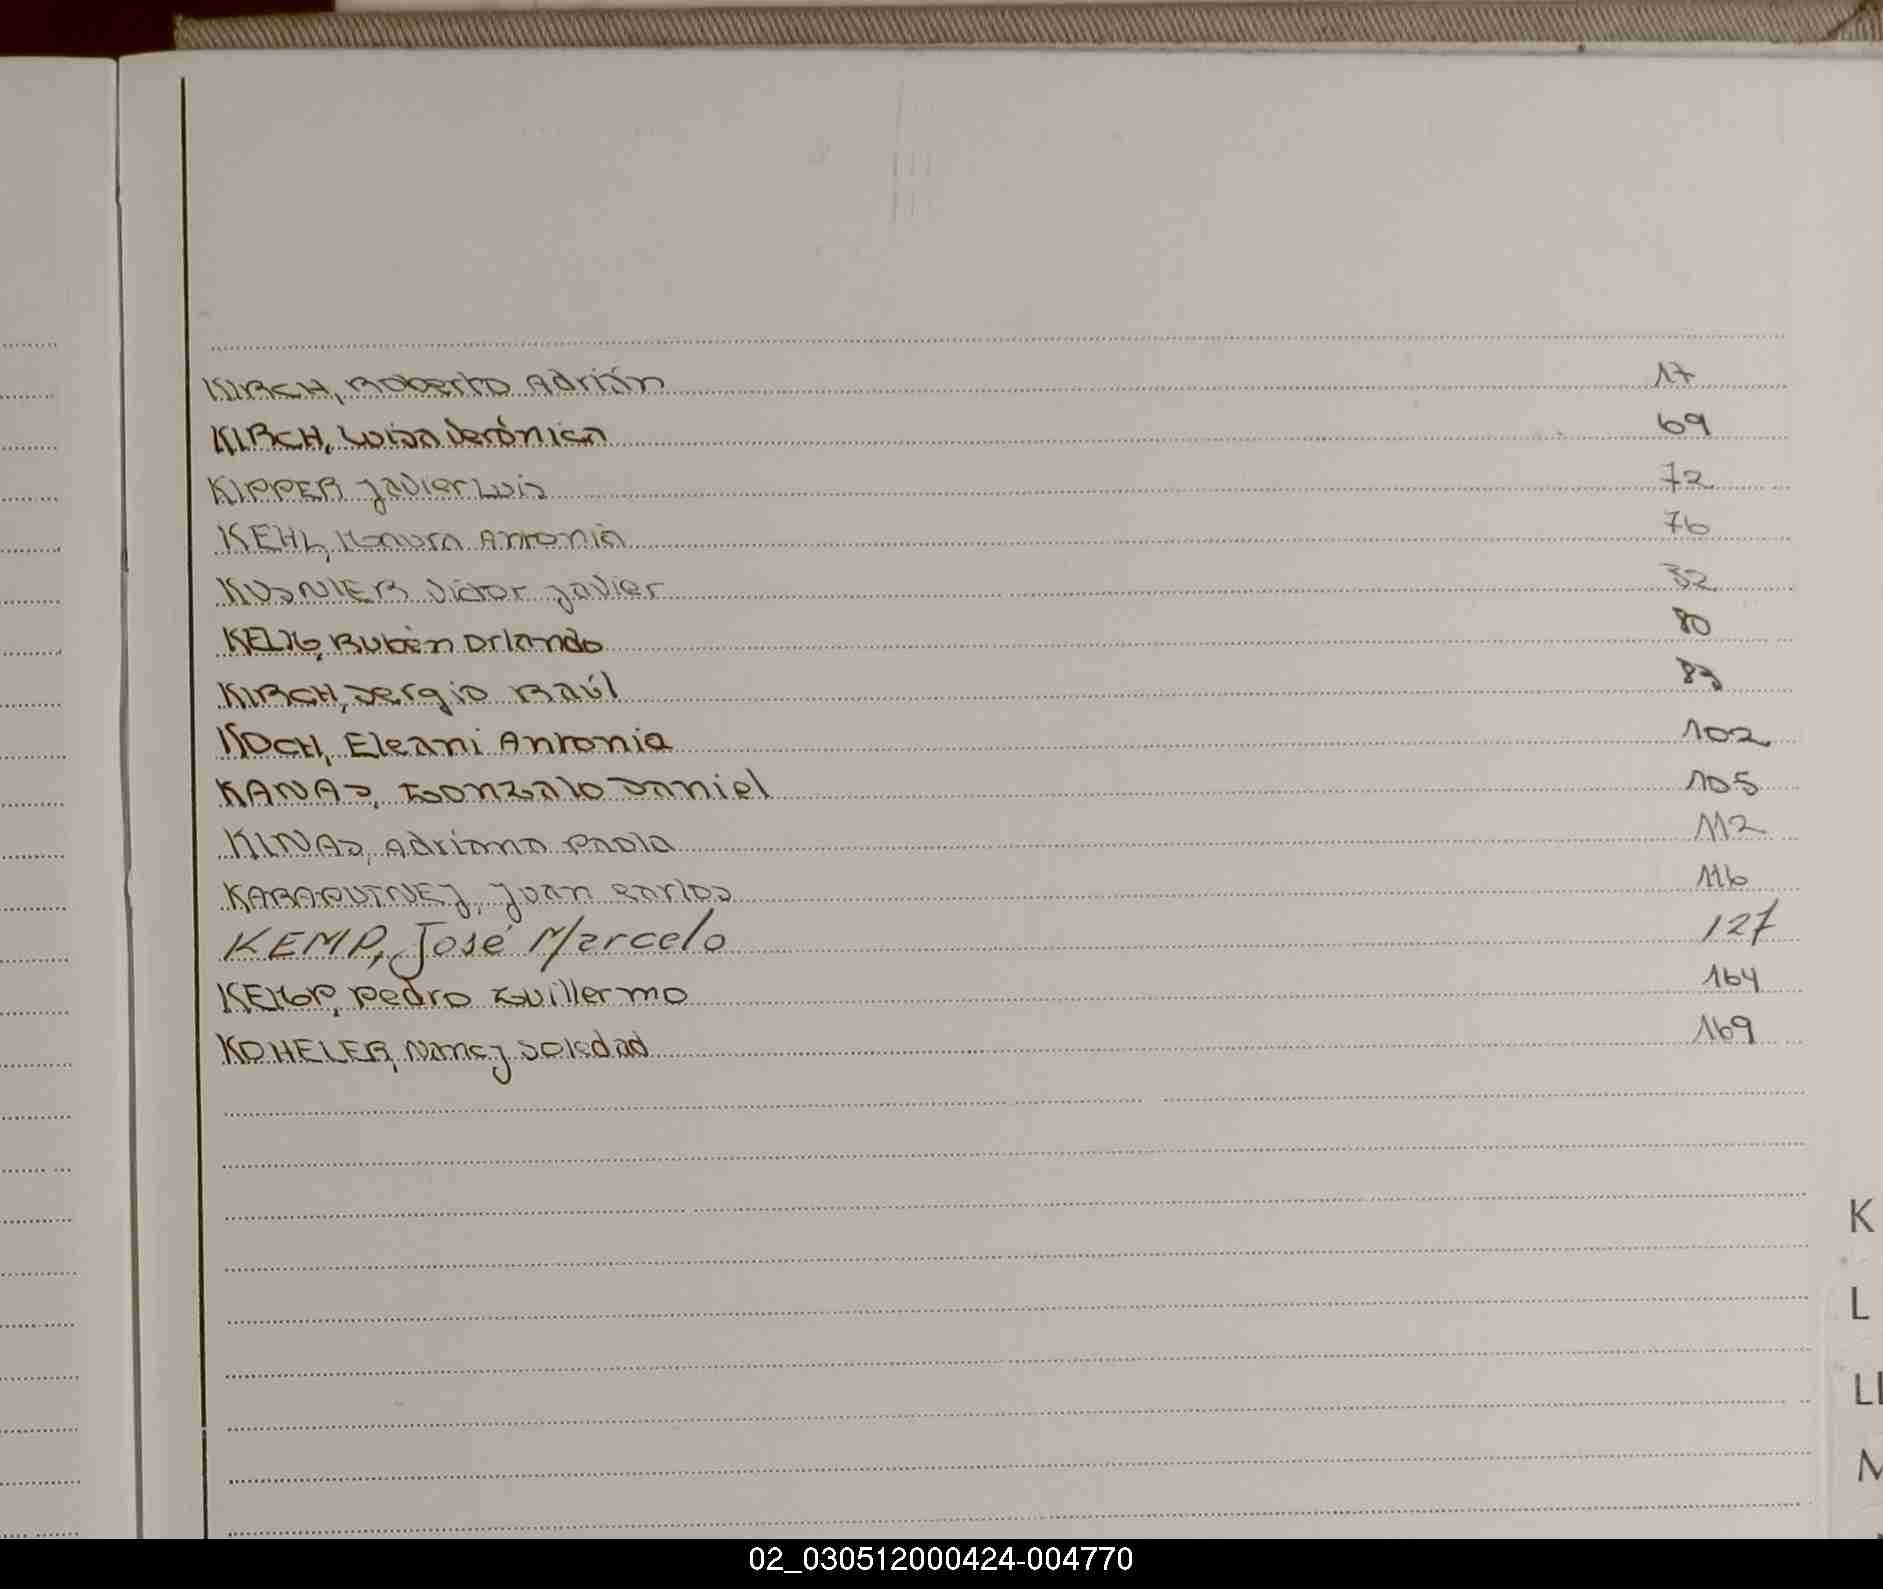 KIRCH, Roberto Adrián 17
KIRCH, Luisa Verónica 69
KIPPER Javier Luis 72
KEHL, Maura Antonia 76
KUSNIER Victor Javier 32
Rubén Orlando 80
KIRCH, Sergio Raúl 83
KOCH, Eleani Antonia 102
KANAS, Gonzalo Daniel 105
KINAS, Adriana Paola 112
Juan Carlos 116
KEMP, José Marcelo 127
KEMP, Pedro Guillermo 164
KOHELER, Nancy Soledad 169
K
L
LL
M
02_030512000424-004770